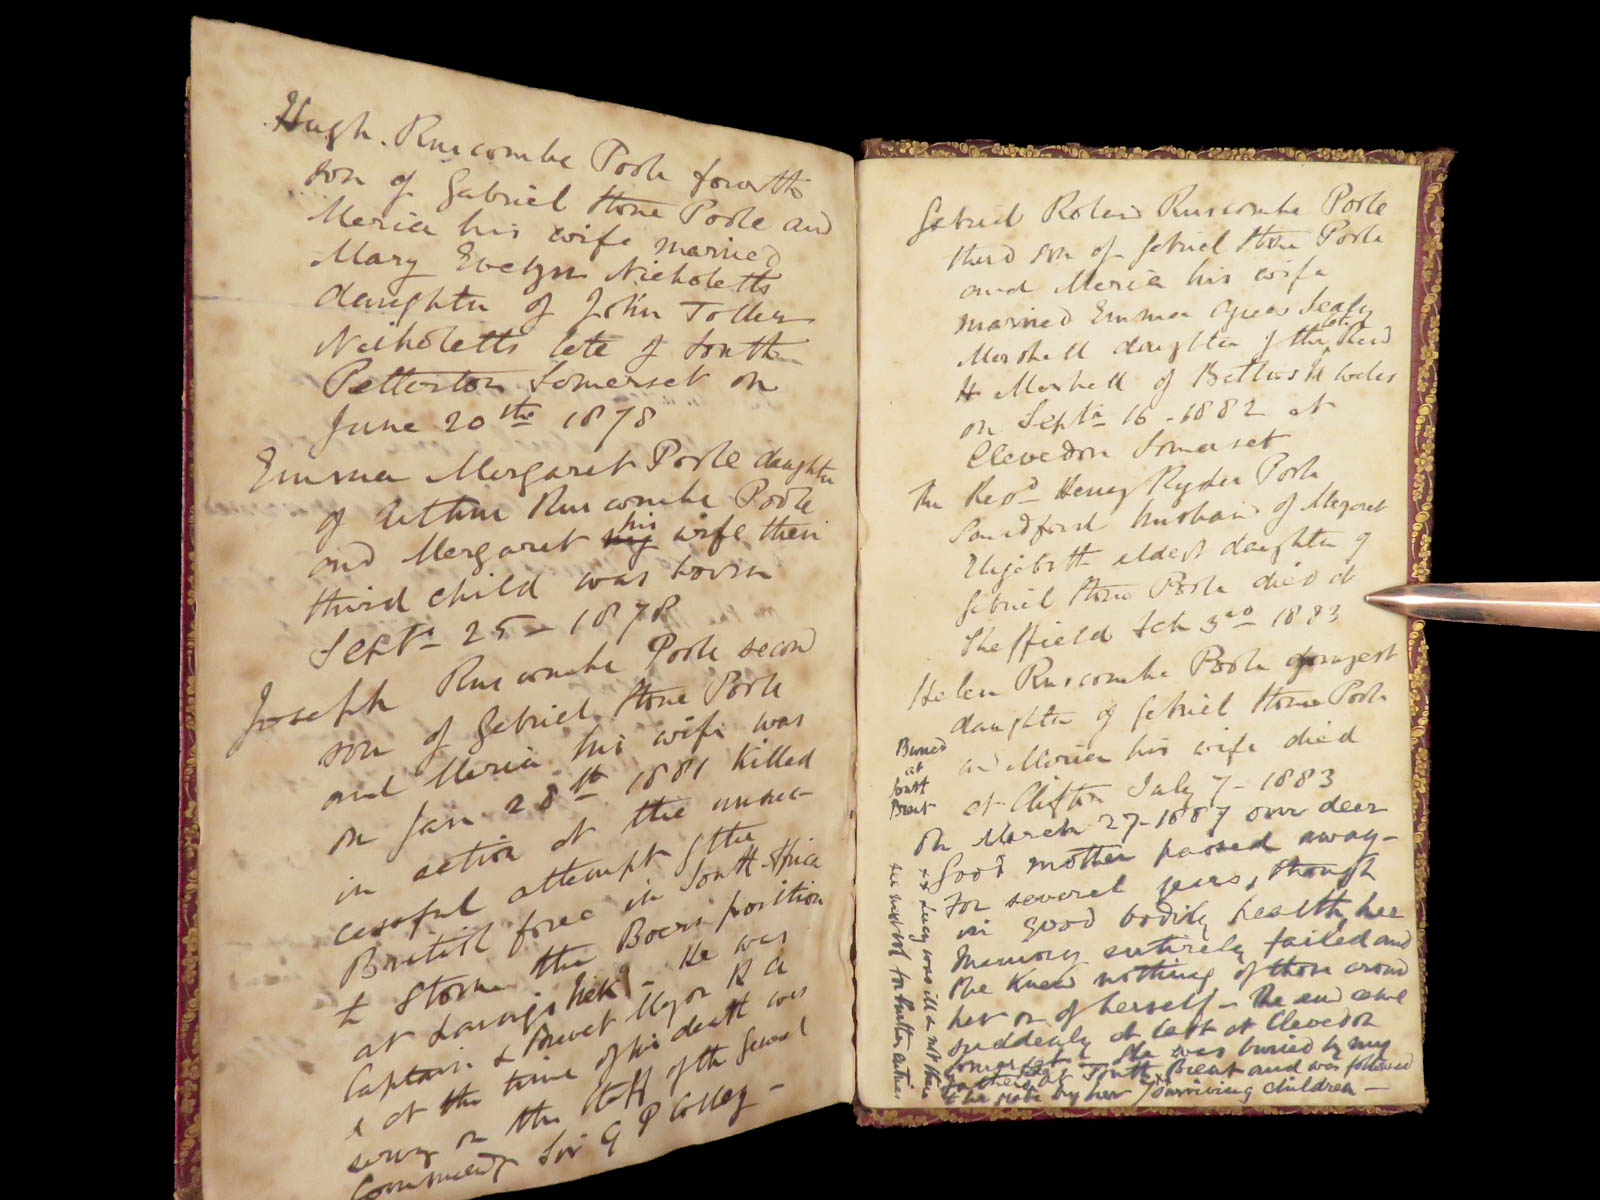 Hugh Ruscombe Poole fourth
son of Gabriel Stone Poole and
Maria his wife married
Mary Evelyn Nicholetts
daughter of John Toller
Nicholetts late of South
Petterton Somerset on
June 20th 1878
Emma Margaret Poole daughter
of Arthur Ruscombe Poole
and Margaret his wife their
third child was born
Septr 25 - 1878
Joseph Ruscombe Poole second
son of Gabriel Stone Poole
and Maria his wife was
on Jan 28th 1881 killed
in action at the unsuc-
cessful attempt of the
British force in South Africa
to storm the Boers position
at Laings Nek - He was
Captain & Brevet Major R A
& at the time of his death was
serving on the Staff of the General
Commandg Sir G P Colley -
Gabriel Roland Ruscombe Poole
third son of Gabriel Stone Poole
and Maria his wife
married Emma Agnes
Marshall daughter of the late Revd
H Marshall of
on Septr 16 - 1882 at
Clevedon Somerset
The Revd Henry Ryder Poole
Sandford husband of Margaret
Elizabeth eldest daughter of
Gabriel Stone Poole died at
Sheffield Feb 3rd 1883
Helen Ruscombe Poole youngest
daughter of Gabriel Stone Poole
and Maria his wife died
at Clifton July 7 - 1883
Buried
at
South
Brent
On March 27 - 1887 our dear
Good mother passed away -
For several years, though
in good bodily health, her
memory entirely failed and
she knew nothing of those around
her or of herself - The end came
suddenly at last at Clevedon
Somerset - She was buried by my
father at South Brent and was followed
to her grave by her xx surviving children -
xx Lucy was ill & not there
see next vol for further entries